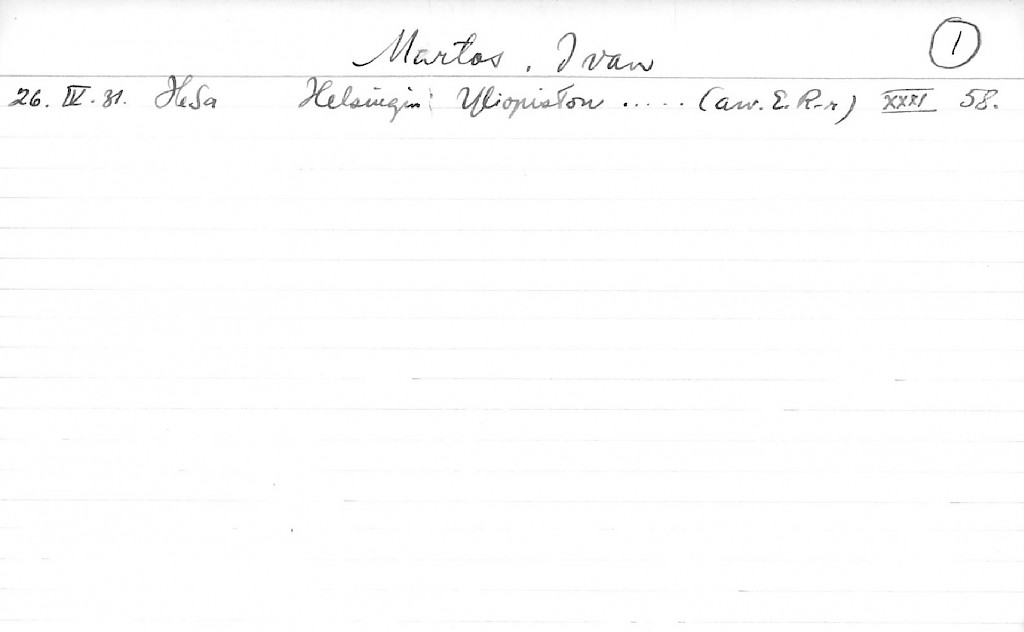 Martos, Ivan 1
26. IV. 31. HeSa Helsingin Yliopiston ..... (arv. E. R-r) XXXI 58.